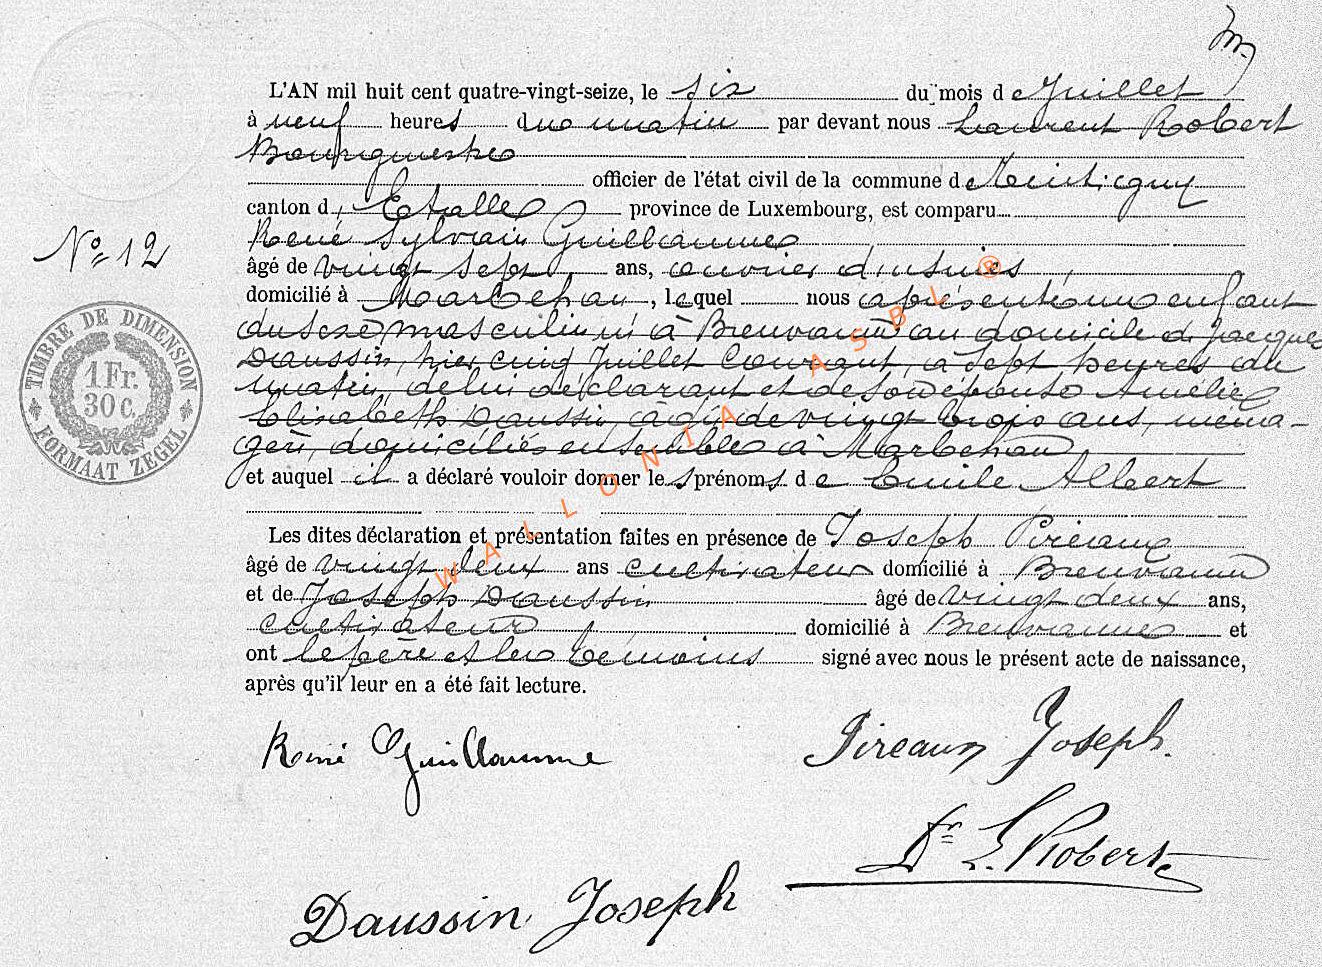 L'AN mil huit cent quatre-vingt-seize, le six du mois de Juillet
à neuf heures du matin par devant nous Laurent Robert
Bourgmestre
officier de l'état civil de la commune de
canton d'Etalle province de Luxembourg, est comparu
René Sylvain Guillaume
âgé de vingt sept ans, ouvrier d'usines
N° 12
domicilié à Marbehan, lequel nous a présenté un enfant
du sexe masculin né à Breuvanne au domicile de Jacques
Daussin, hier cinq Juillet courant, à sept heures du
matin, de lui déclarant et de son épouse Amélie
Elisabeth Daussin, agée de vingt trois ans, ména-
gère, domiciliés ensemble à Marbehan
et auquel il a déclaré vouloir donner les prénoms de Emile Albert
Les dites déclaration et présentation faites en présence de Joseph Pireaux
âgé de vingt deux ans cultivateur domicilié à Breuvanne
et de Joseph Daussin âgé de vingt deux ans,
cultivateur domicilié à Breuvanne et
ont le père et les témoins signé avec nous le présent acte de naissance,
après qu'il leur en a été fait lecture.
TIMBRE DE DIMENSION
1 Fr.
30 c.
FORMAAT ZEGEL
WALLONIA ASBL ®
René Guillaume
Pireaux Joseph.
Dr L. Robert
Daussin Joseph